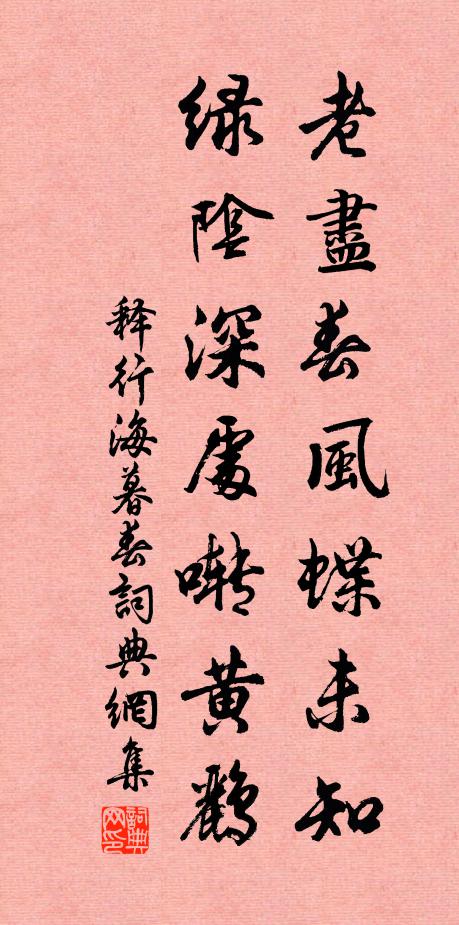 老盡春風蝶未知
緑陰深處囀黄鸝
释行海暮春詞典網集
詞典网印